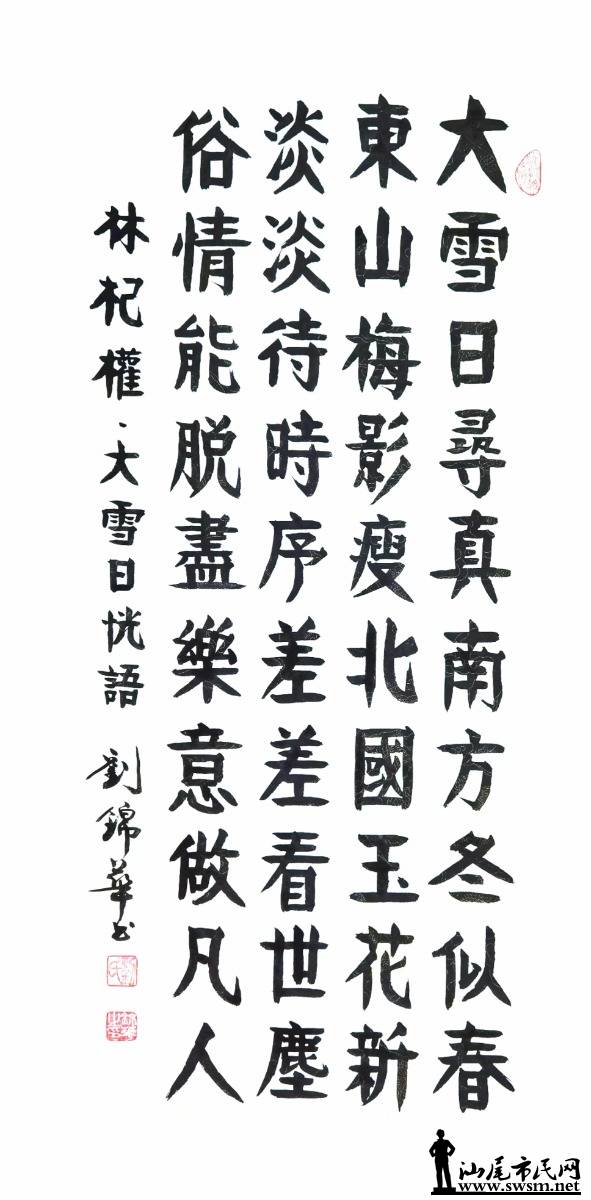 大雪日尋真南方冬似春
東山梅影瘦北國玉花新
淡淡待時序差差看世塵
俗情能脱盡樂意做凡人
林杞權、大雪日恍語 劉錦華书
汕尾市民网
www.swsm.net